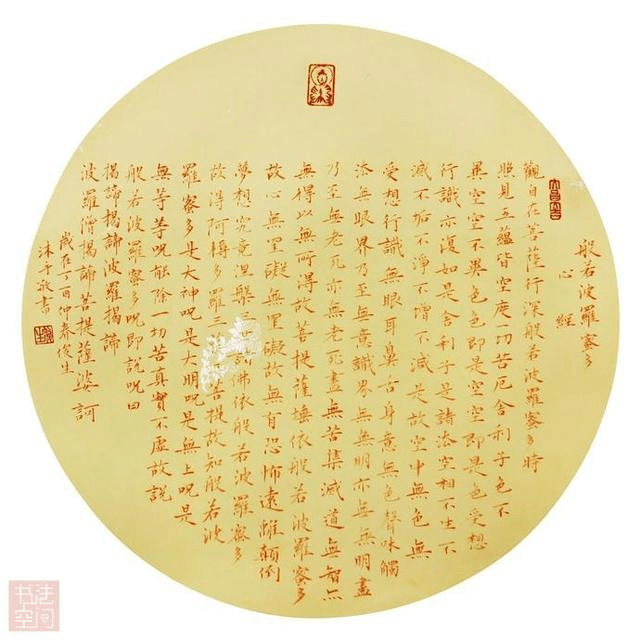 般若波羅蜜多
心經
觀自在菩薩行深般若波羅蜜多時
照見五蘊皆空度一切苦厄舍利子色不
異空空不異色色即是空空即是色受想
行識亦復如是舍利子是諸法空相不生不
滅不垢不淨不增不減是故空中無色無
受想行識無眼耳鼻舌身意無色聲味觸
法無眼界乃至無意識界無無明亦無無明盡
乃至無老死亦無老死盡無苦集滅道無智亦
無得以無所得故菩提薩埵依般若波羅蜜多
故心無罣礙無罣礙故無有恐怖遠離顛倒
夢想究竟涅槃三佛依般若波羅蜜多
故得阿耨多羅三菩提故知般若波
羅蜜多是大神呪是大明呪是無上呪是
無等等呪能除一切苦真實不虛故說
般若波羅蜜多呪即說呪曰
揭諦揭諦波羅揭諦
波羅僧揭諦菩提薩婆訶
歲在丁酉仲春俊生
沐手敬書
书法空间